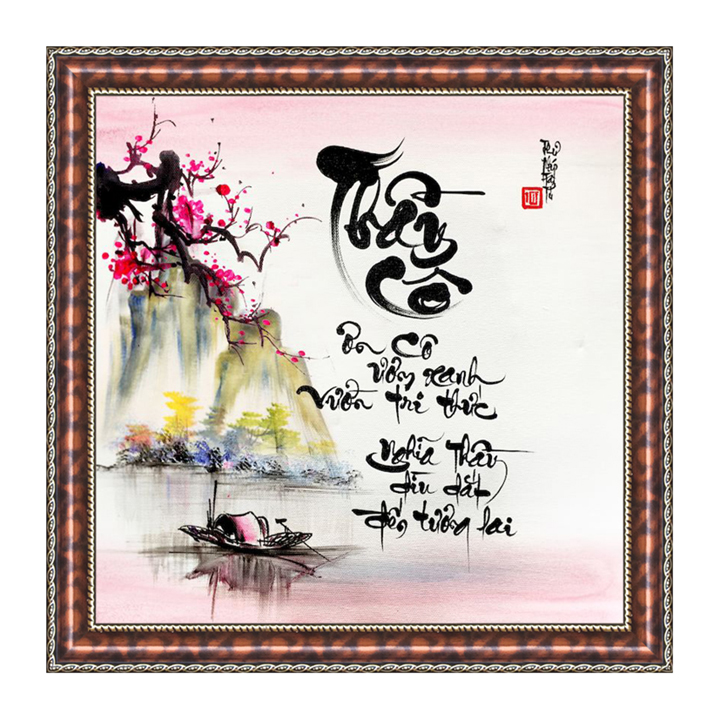 Thầy
Cô
Ơn Cô
ươm xanh
Vườn tri thức
Nghĩa Thầy
dìu dắt
đến tương lai